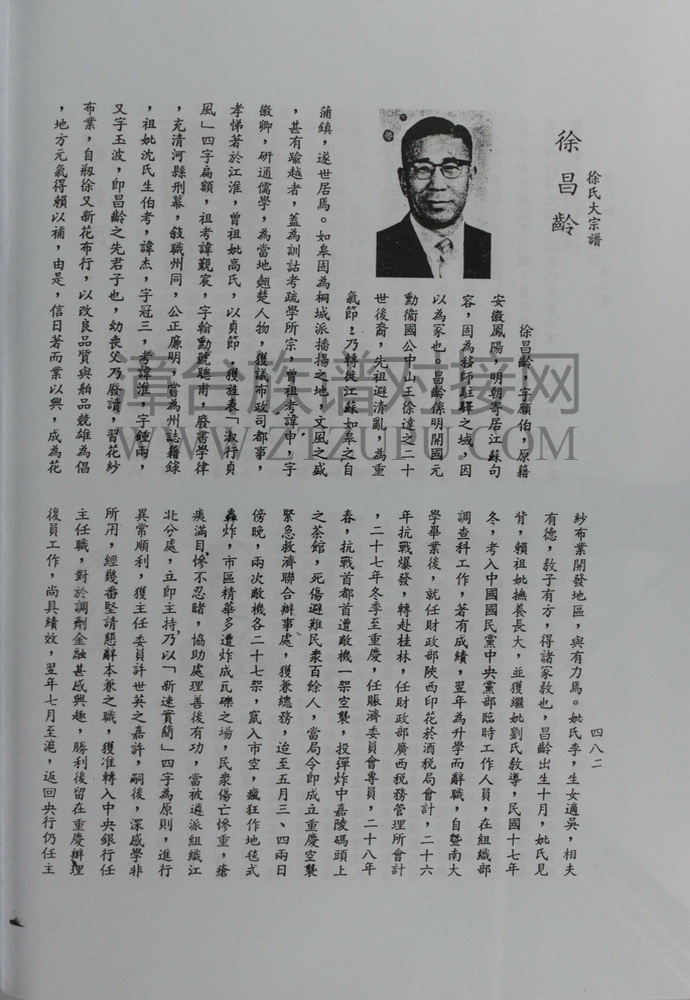 徐氏大宗譜
四八二
徐昌齡
徐昌齡，字願伯，原籍
安徽鳳陽，明朝寄居江蘇句
容，因為移師駐驛之域，因
以為家也。昌齡係明開國元
勳衞國公中山王徐達之二十
世後裔，先祖避清亂，為重
氣節，乃轉徙江蘇如皋之白
蒲鎮，遂世居焉。如皋因為桐城派播揚之地，文風之盛
，甚有踰越者，蓋為訓詁考疏學所宗，曾祖考諱申，字
徽卿，研通儒學，為當地翹楚人物，獲議布政司都事，
孝悌著於江淮，曾祖妣高氏，以貞節，獲旌表「淑行貞
風」四字扁額，祖考諱觀宸，字翰勳號聰甫，廢書學律
，充清河縣刑幕，敍職州同，公正廉明，嘗為州誌籍錄
，祖妣沈氏生伯考，諱杰，字冠三，考諱淮，字鍾兩，
又字玉波，即昌齡之先君子也，幼喪父乃廢讀，習花紗
布業，自剏徐又新花布行，以改良品質與舶品競雄為倡
，地方元氣得賴以補，由是，信日著而業以興，成為花
紗布業開發地區，與有力焉。妣氏李，生女適吳，相夫
有德，教子有方，得諸家教也，昌齡出生十月，妣氏見
背，賴祖妣撫養長大，並獲繼妣劉氏教導，民國十七年
冬，考入中國國民黨中央黨部臨時工作人員，在組織部
調查科工作，著有成績，翌年為升學而辭職，自暨南大
學畢業後，就任財政部陝西印花菸酒稅局會計，二十六
年抗戰爆發，轉赴桂林，任財政部廣西稅務管理所會計
，二十七年冬季至重慶，任賑濟委員會專員，二十八年
春，抗戰首都首遭敵機一架空襲，投彈炸中嘉陵碼頭上
之茶館，死傷避難民衆百餘人，當局令即成立重慶空襲
緊急救濟聯合辦事處，獲兼總務，迨至五月三、四兩日
傍晚，兩次敵機各二十七架，竄入市空，瘋狂作地毯式
轟炸，市區精華多遭炸成瓦礫之場，民衆傷亡慘重，瘡
痍滿目慘不忍睹，協助處理善後有功，當被遴派組織江
北分處，立即主持乃以「新速實簡」四字為原則，進行
異常順利，獲主任委員許世英之嘉許，嗣後，深感學非
所用，經幾番堅請懇辭本兼之職，獲准轉入中央銀行任
主任職，對於調劑金融甚感興趣，勝利後留在重慶辦理
復員工作，尚具績效，翌年七月至滬，返回央行仍任主
譜台族谱对接网
WWW.ZTZUPU.COM